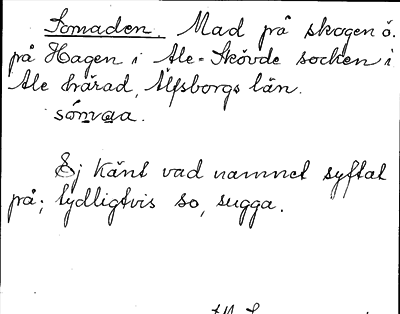 Somaden. Mad på skogen ö.
på Hagen i Ale-Skövde socken i
Ale härad, Älfsborgs län.
sómaa.
Ej känt vad namnet syftat
på; tydligtvis so, sugga.